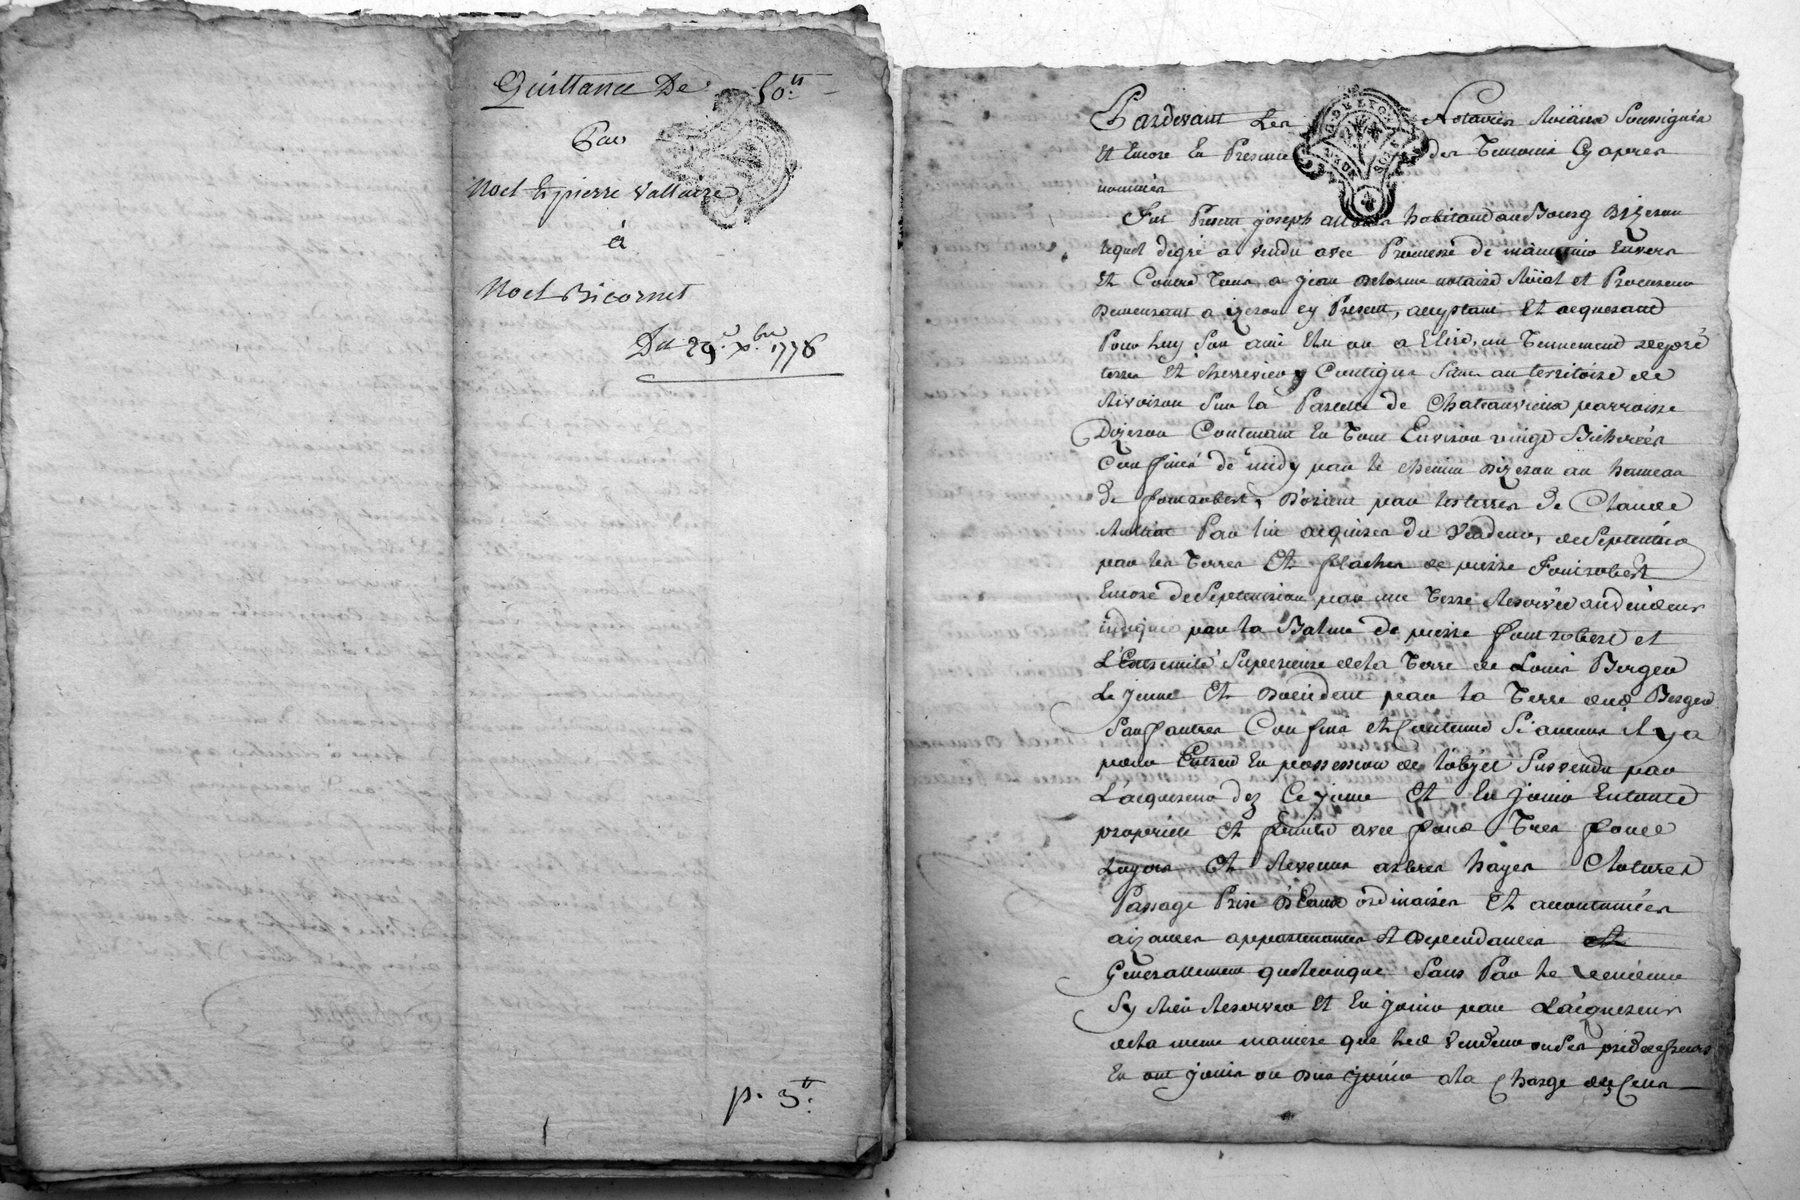 Quittance De 50.lt
Par
Noel Et pierre Vallaize
à
Noel Bicornet
Du 29.e Xbre 1776
p. 3.lt
Pardevant Les Notaires Roiaux Soussignés
Et Encore En Presence des Temoins Cy apres
nommés
Fut Present joseph habitand au Bourg Dizeron
lequel degré a vendu avec Promesse de maintenir Envers
Et Contre Tous a jean Delorme notaire Roial et Procureur
Demeurant a izeron cy Present, acceptant Et acquerant
Pour Luy Son ami Elu ou a Elire, un Tennement de pré
terre Et Contigus Situé au territoire de
Sur la Parcelle de Chateauvieux parroisse
Dizeron Contenant En Tout Environ vingt Bicherées
Confiné de midy par le chemin Dizeron au hameau
de fontrobert, D'orient par les terres de Claude
Par lui acquises du Vendeur, de Septentrion
par les Terres Et flaches de pierre Fontrobert
Encore de Septentrion par une Terre Reservée au vendeur
par la Balme de pierre fontrobert et
L'Extremité Superieure de la Terre de Louis Berger
Le jeune Et Doccident par la Terre dud Berger
Sauf autres Confins et Contenue Si aucuns il y a
pour Entrer En possession de l'objet Susvendu par
L'acquereur dez Ce jour Et En jouir En toute
proprieté et avec fond Tres fond
Et Revenus arbres hayes Clotures
Passage Prise D'Eaux ordinaires Et accoutumées
aizances appartenances Et Dependances et
Generallement quelconque Sans Par le vendeur
Sy Rien Reserver Et En jouir par L'acquereur
de la meme maniere que led Vendeur ou Ses predecesseurs
En ont joui ou Du jouir a la Charge des Cens